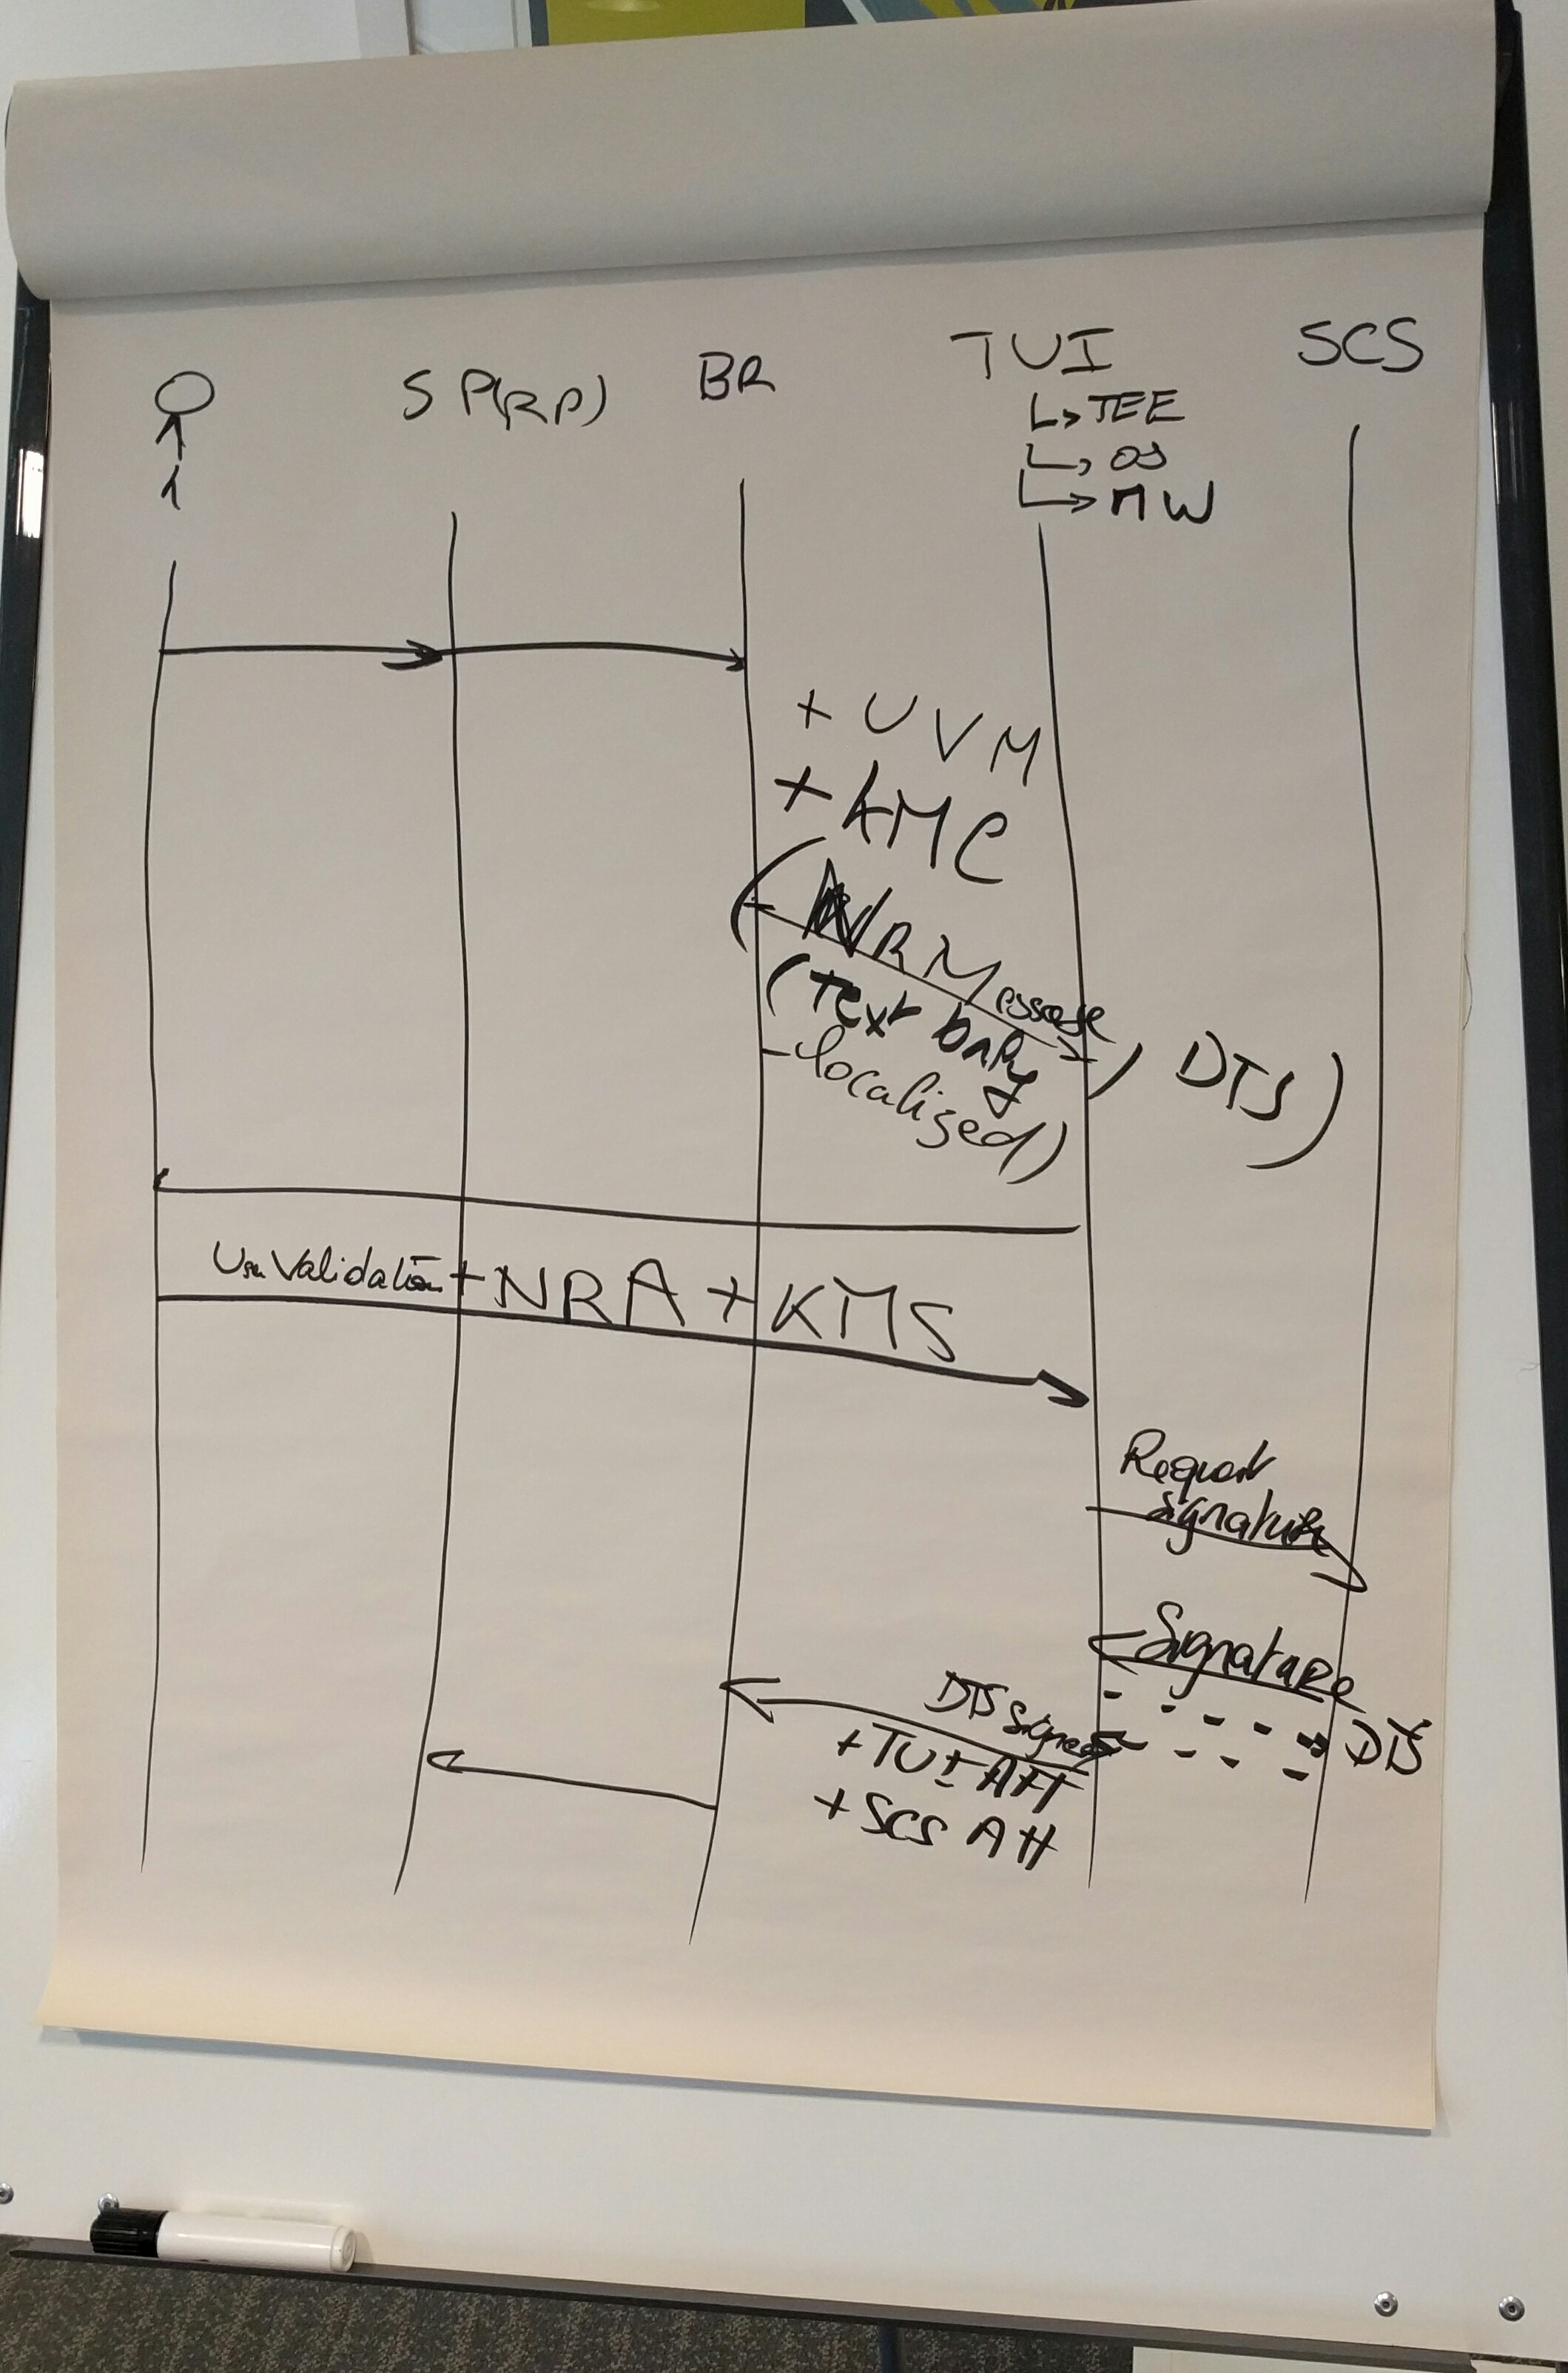 SP(RP)
BR
TUI
SCS
↳ TEE
↳ OS
↳ MW
+ UVM
+ AMC
( NR Message
(text only
- localized)
, DTS )
User Validation + NRA + KMS
Request
signature
Signature
DTS signed
DTS
+ TUI Att
+ SCS Att